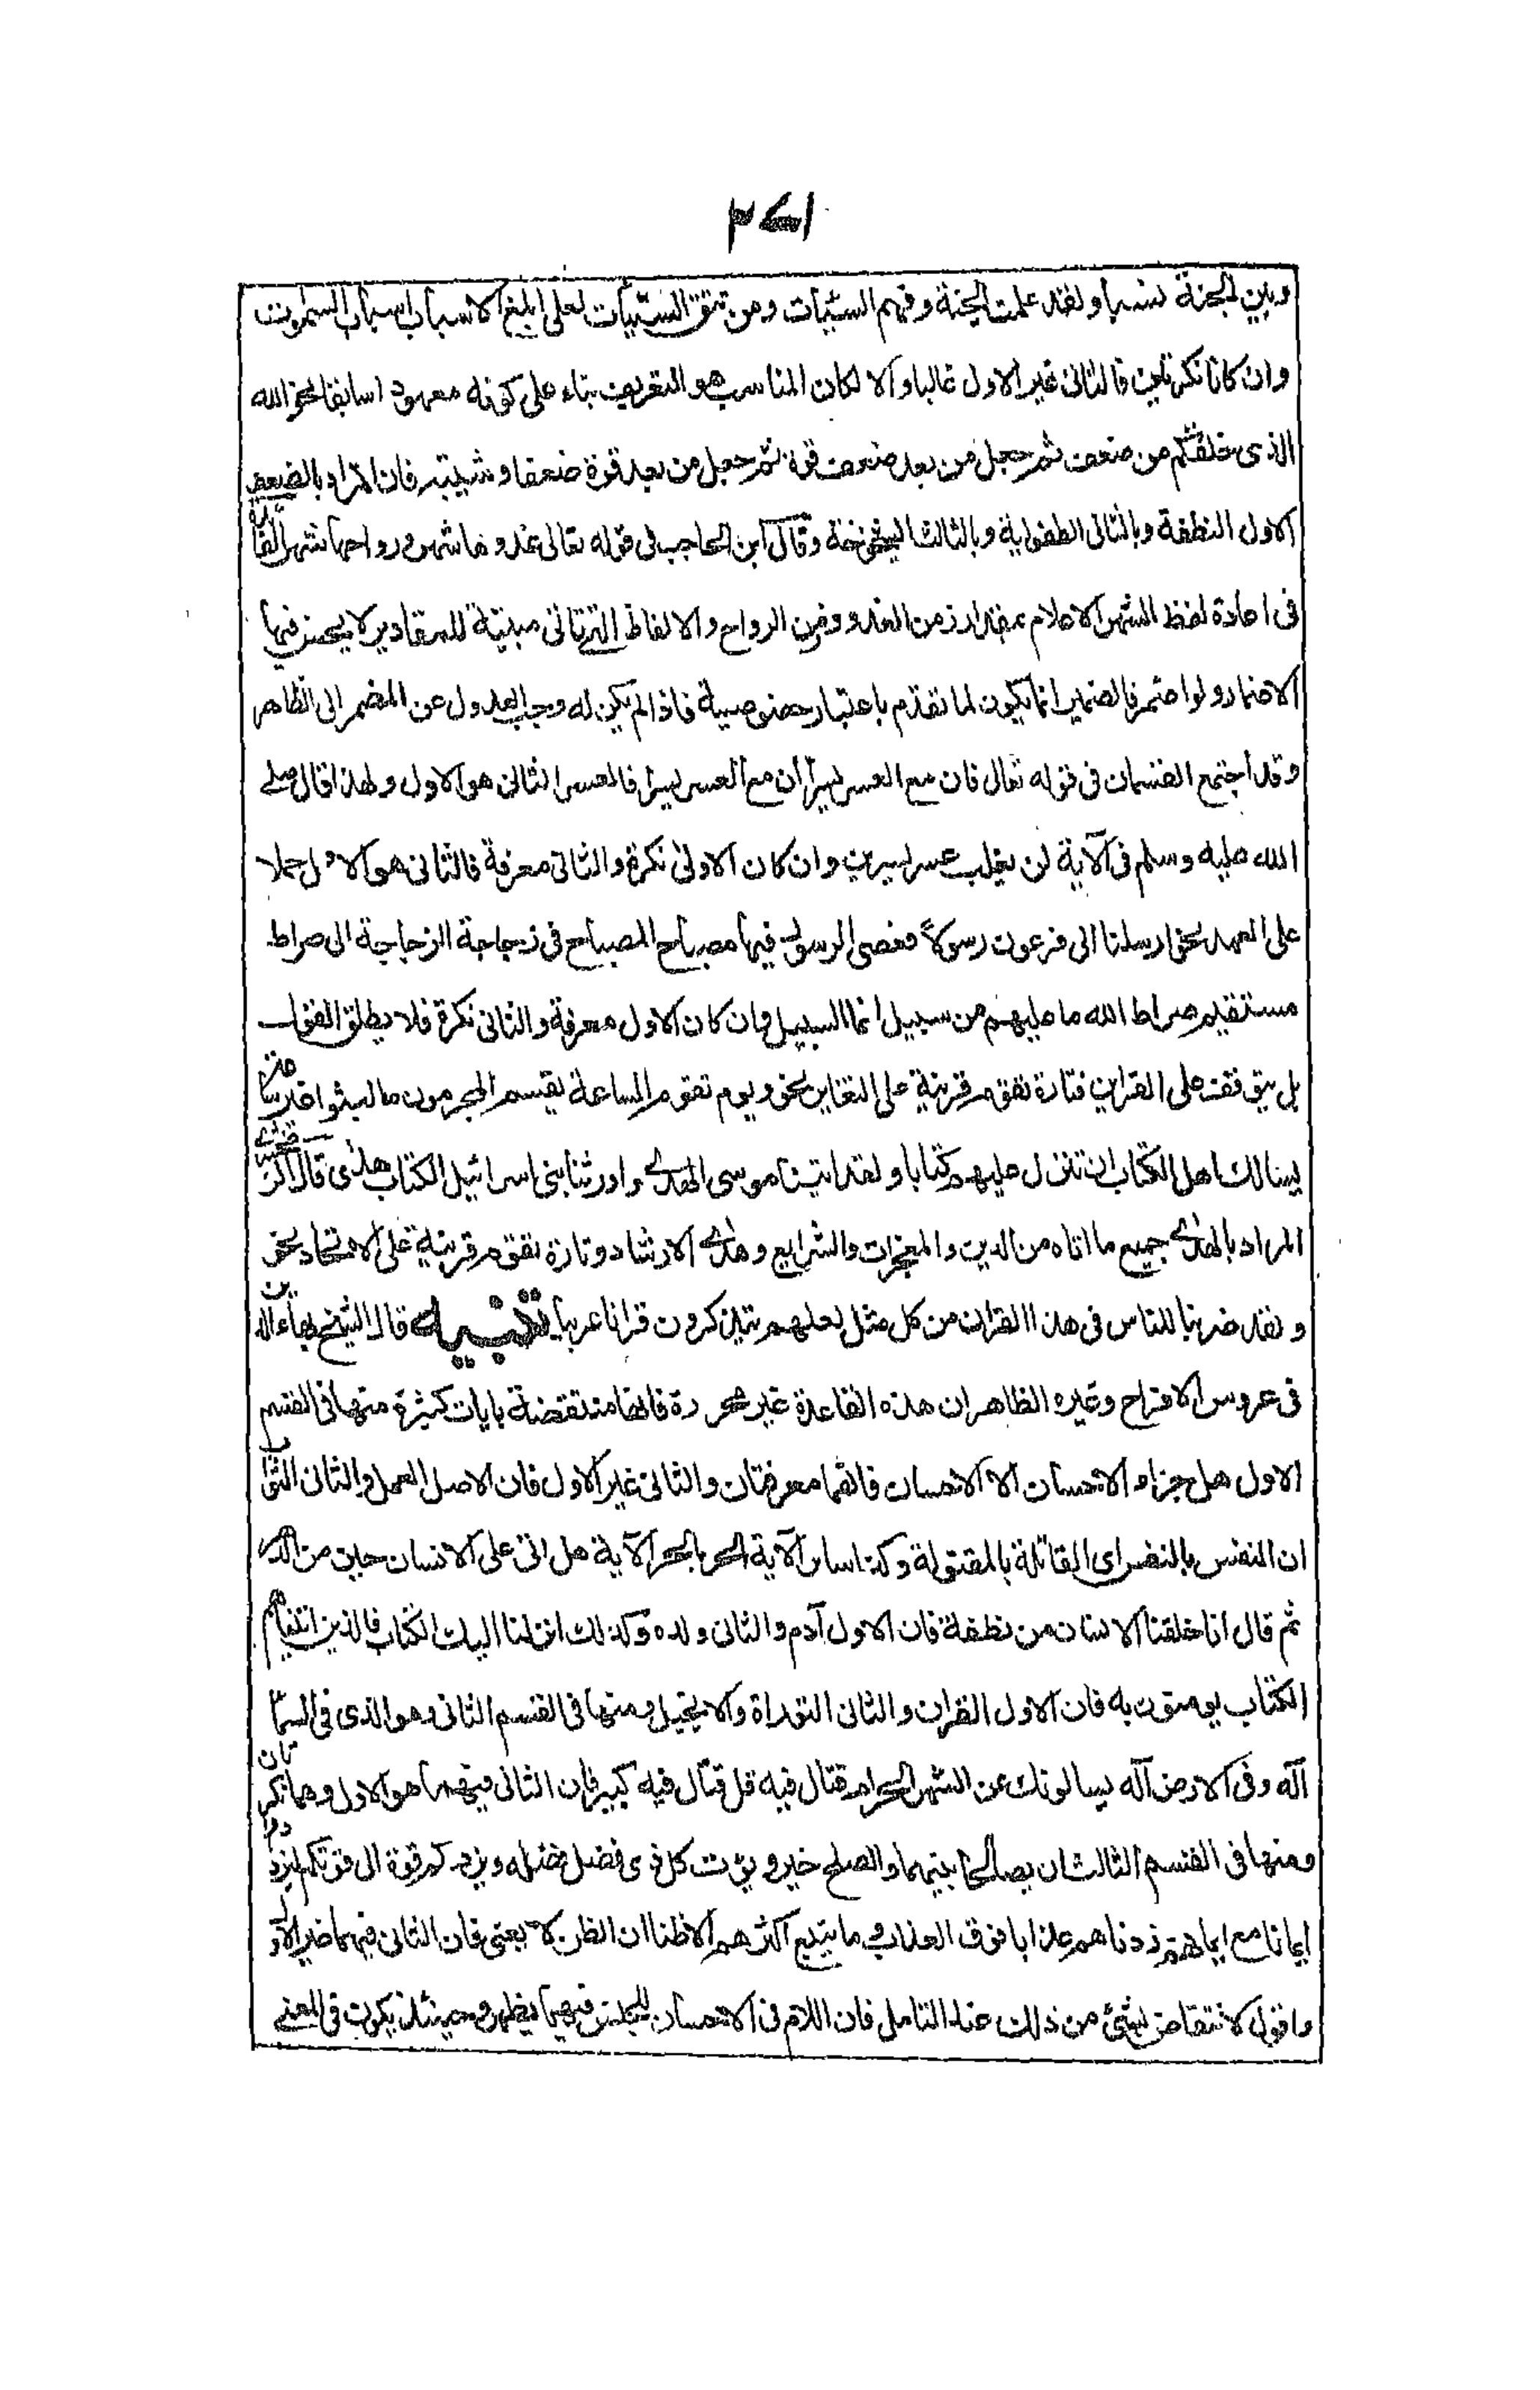 ٣٧١
وبين الجنة نسبا ولقد علمت الجنة وقهم السيئات ومن تق السيئات لعلى ابلغ الاسباب اسباب السموت
وان كانا نكرتين فالثانى غير الاول غالبا والا لكان المناسب هو التعريف بناء على كونه معهودا سابقا نحو الله
الذى خلقكم من ضعف ثم جعل من بعد ضعف قوة ثم جعل من بعد قوة ضعفا وشيبة فان المراد بالضعف
الاول النطفة وبالثانى الطفولية وبالثالث الشيخوخة وقال ابن الحاجب فى قوله تعالى غدوها شهر ورواحها شهر الفائدة
فى اعادة لفظ الشهر الاعلام بمقدار زمن الغدو وزمن الرواح والالفاظ التى تاتى مبينة للمقادير لا يحسن فيها
الاضمار ولو اضمر فالضمير انما يكون لما تقدم باعتبار خصوصية فاذا لم يكن له وجب العدول عن المضمر الى الظاهر
وقد اجتمع القسمان فى قوله تعالى فان مع العسر يسرا ان مع العسر يسرا فالعسر الثانى هو الاول ولهذا قال صلى
الله عليه وسلم فى الآية لن يغلب عسر يسرين وان كان الاول نكرة والثانى معرفة فالثانى هو الاول حملا
على العهد نحو ارسلنا الى فرعون رسولاً فعصى فرعون الرسول فيها مصباح المصباح فى زجاجة الزجاجة الى صراط
مستقيم صراط الله ما عليهم من سبيل انما السبيل وان كان الاول معرفة والثانى نكرة فلا يطلق القول
بل يتوقف على القراين فتارة تقوم قرينة على التغاير نحو ويوم تقوم الساعة يقسم المجرمون ما لبثوا غير ساعة
يسالك اهل الكتاب ان تنزل عليهم كتابا ولقد اتينا موسى الهدى واورثنا بنى اسرائيل الكتاب هدى قال الزمخشرى
المراد بالهدى جميع ما اتاه من الدين والمعجزات والشرايع وهدى الارشاد وتارة تقوم قرينة على الاتحاد نحو
ولقد ضربنا للناس فى هذا القران من كل مثل لعلهم يتذكرون قرانا عربيا تنبيه قال الشيخ بهاء الدين
فى عروس الافراح وغيره الظاهر ان هذه القاعدة غير محررة فانها منتقضة بايات كثيرة منها فى القسم
الاول هل جزاء الاحسان الا الاحسان فانهما معرفتان والثانى غير الاول فان الاصل العمل والثانى الثواب
ان النفس بالنفس اى القاتلة بالمقتولة وكذا سائر الآية الحر بالحر الآية هل اتى على الانسان حين من الدهر
ثم قال انا خلقنا الانسان من نطفة فان الاول آدم والثانى ولده وكذلك انزلنا اليك الكتاب فالذين اتيناهم
الكتاب يومنون به فان الاول القران والثانى التوراة والانجيل ومنها فى القسم الثانى وهو الذى فى السماء
آله وفى الارض آله يسالونك عن الشهر الحرام قتال فيه قل قتال فيه كبير فان الثانى فيهما هو الاول وهما نكرتان
ومنها فى القسم الثالث ان يصالحا بينهما والصلح خير ويؤت كل ذى فضل فضله ويزدكم قوة الى قوتكم ليزدادوا
ايمانا مع ايمانهم زدناهم عذابا فوق العذاب وما يتبع اكثرهم الا ظنا ان الظن لا يغنى فان الثانى فيها غير الاول
واقول لا انتقاض بشئ من ذلك عند التامل فان اللام فى الاحسان للجنس فيما يظهر وحينئذ يكون فى المعنى